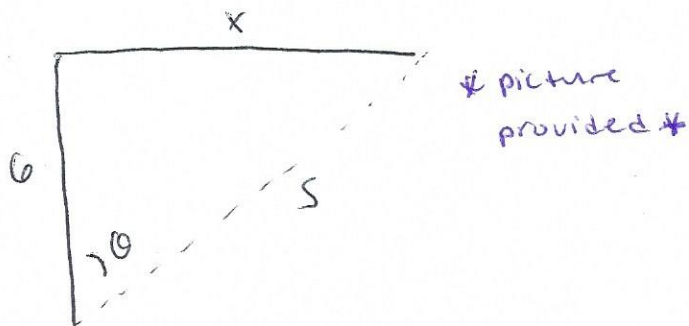 x
* picture
provided *
6
S
θ